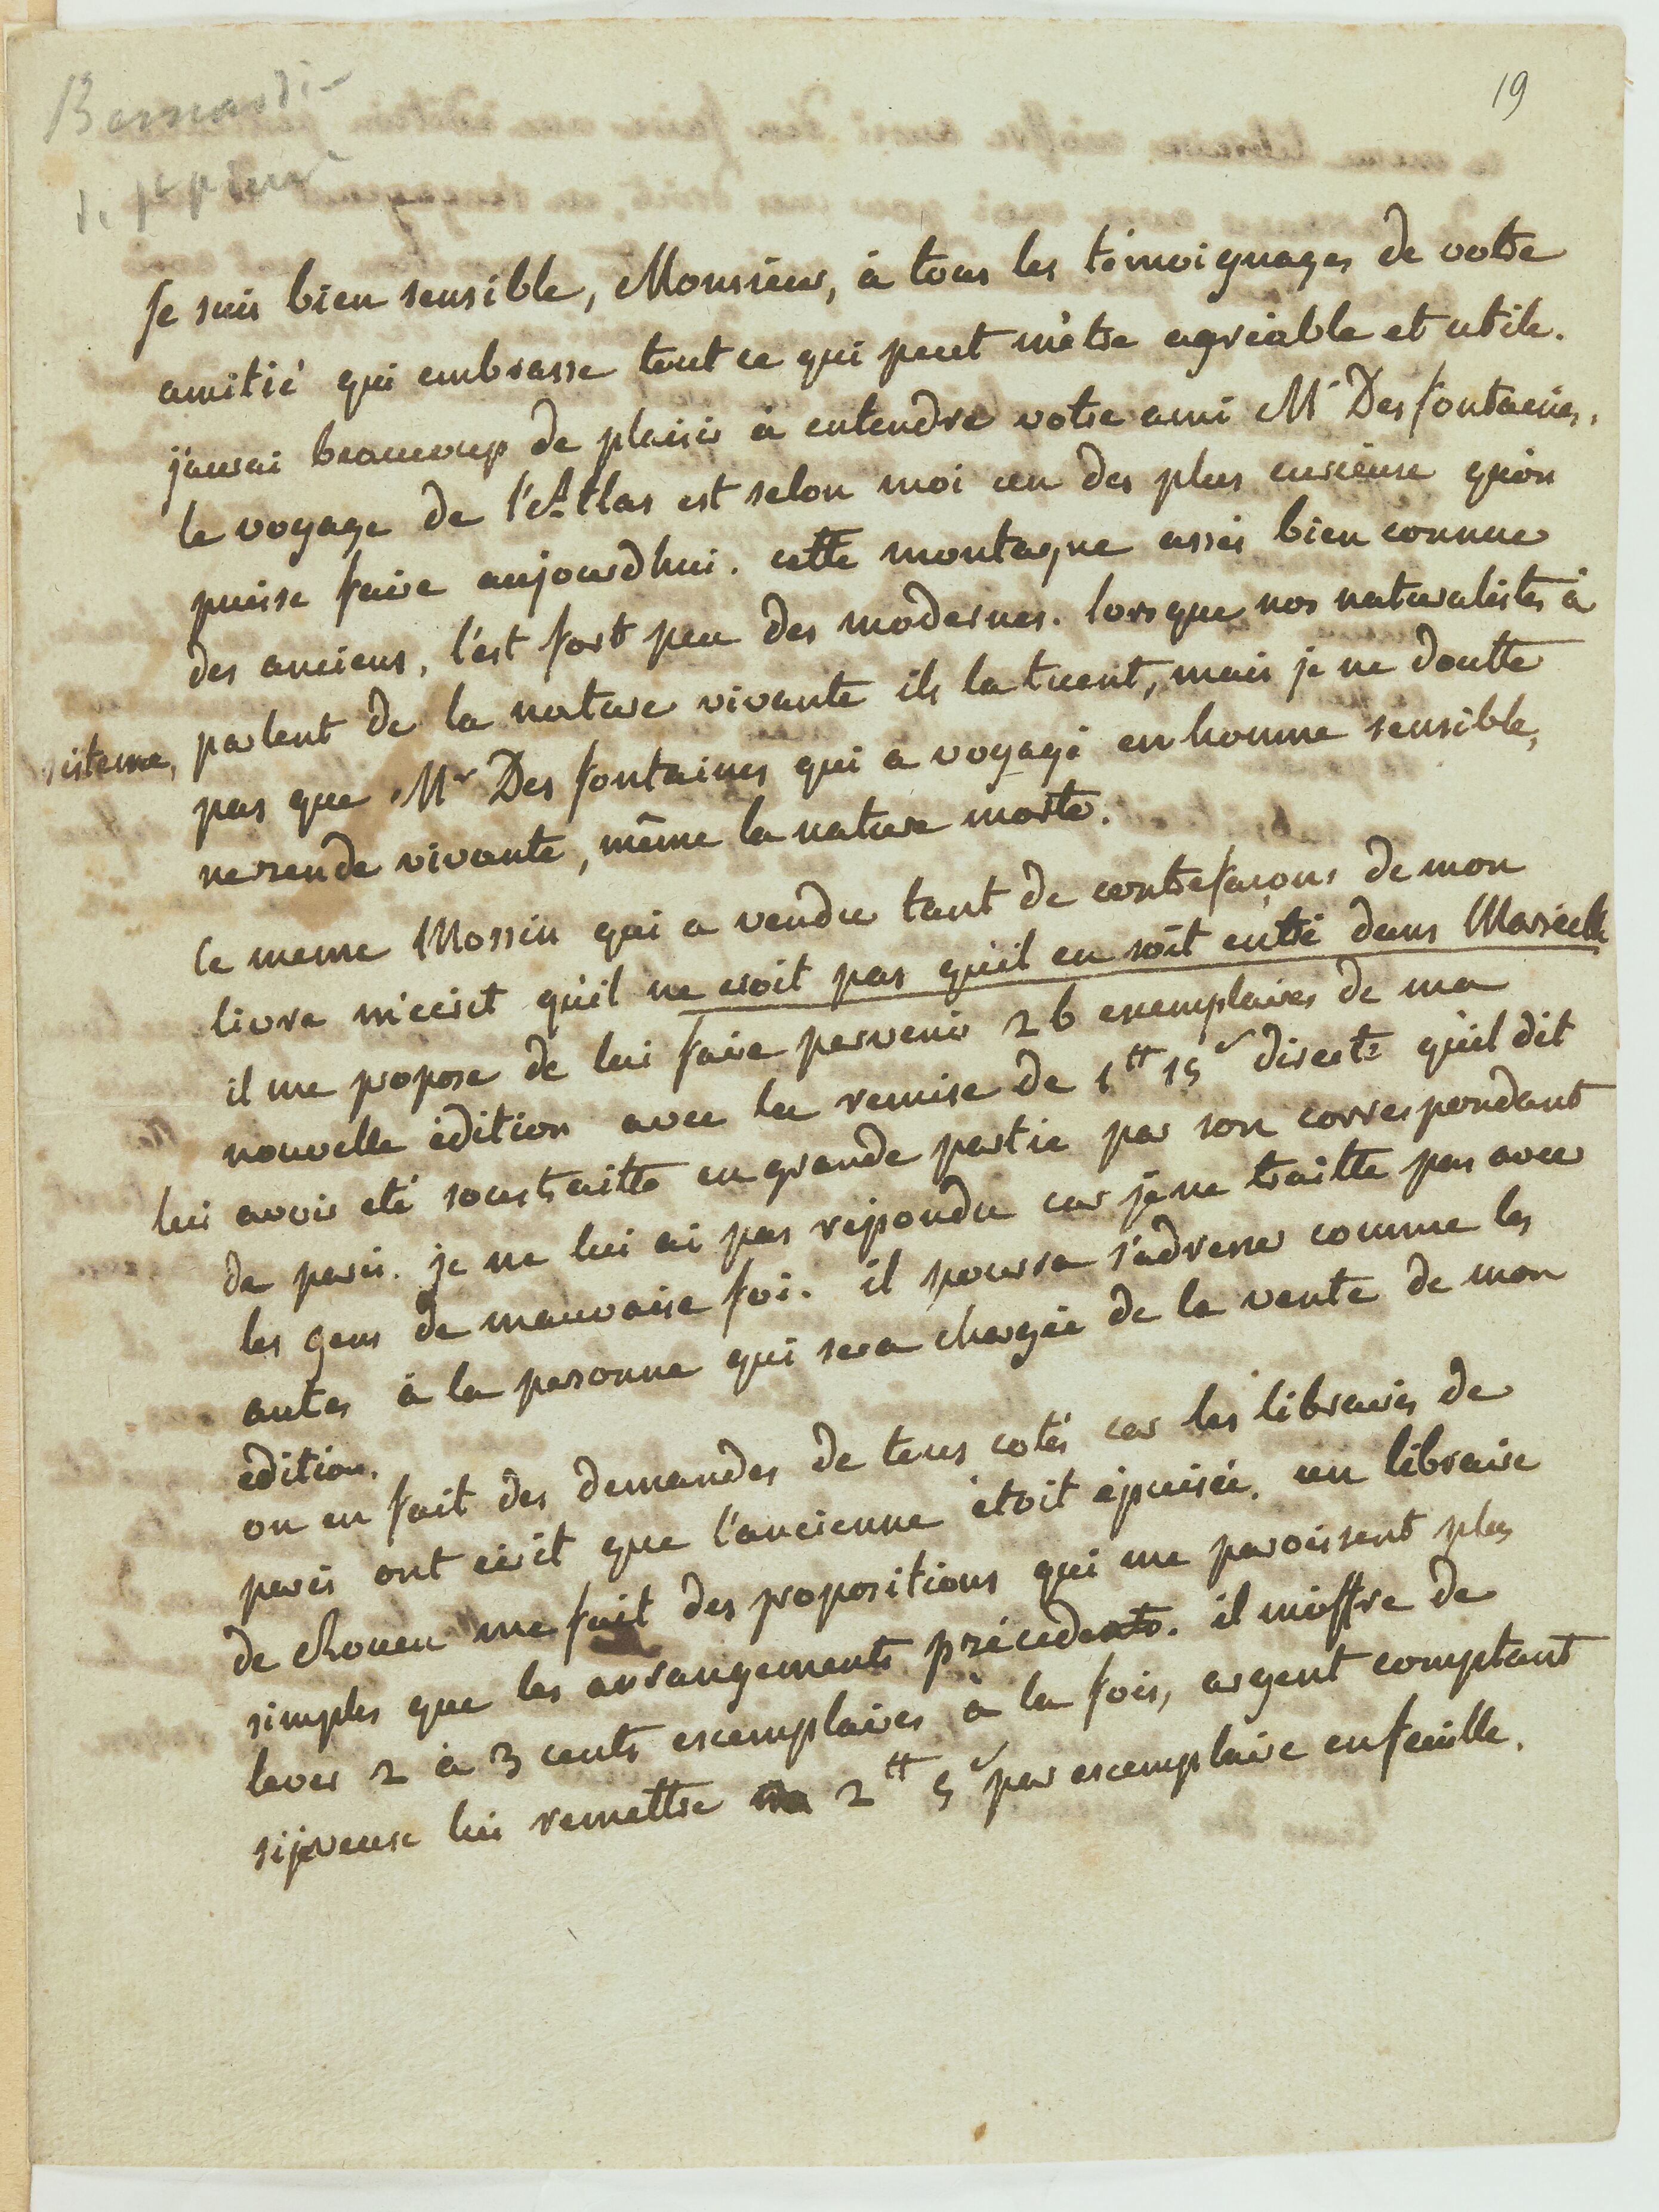 19
Bernardin
de St pierre
Je suis bien sensible, Monsieur, à tous les témoignages de votre
amitié qui embrasse tout ce qui peut m'être agréable et utile.
j'aurai beaucoup de plaisir à entendre votre ami Mr Des fontaines.
le voyage de l'Atlas est selon moi un des plus curieux qu'on
puisse faire aujourdhui. cette montagne assés bien connue
des anciens, l'est fort peu des modernes. lorsque nos naturalistes à
sisteme, parlent de la nature vivante ils la tuent, mais je ne doutte
pas que Mr Des fontaines qui a voyagé en homme sensible,
ne rende vivante, même la nature morte.
Ce meme Mossin qui a vendu tant de contrefaçons de mon
livre m'écrit qu'il ne croit pas qu'il en soit entré dans Marseille
il me propose de lui faire parvenir 26 exemplaires de ma
nouvelle édition avec la remise de 1tt 15s directe qu'il dit
lui avoir eté soustraitte en grande partie par son correspondant
de paris. je ne lui ai pas répondu car je ne traitte pas avec
les gens de mauvaise foi. il pourra s'adresser comme les
autes à la personne qui sera chargée de la vente de mon
edition.
on en fait des demandes de tous cotés car les libraires de
paris ont écrit que l'ancienne étoit épuisée. un libraire
de Rouen me fait des propositions qui me paroissent plus
simples que les arrangements précedents. il m'offre de
lever 2 à 3 cents exemplaires à la fois, argent comptant
si je veux lui remettre 2tt 5s par exemplaire en feuille.